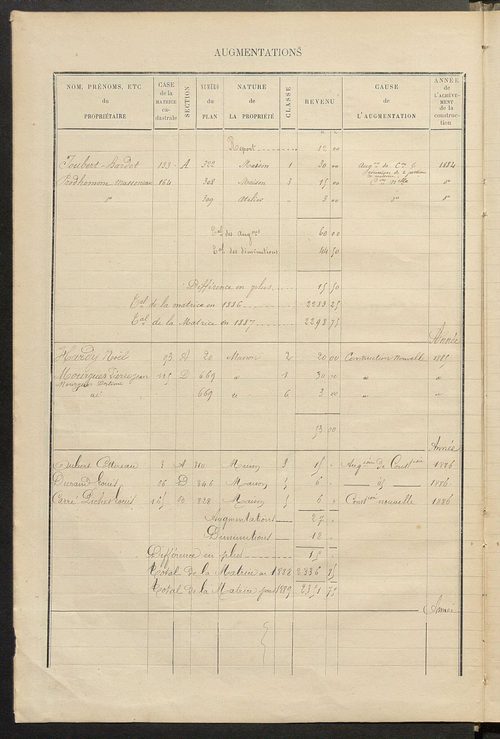 AUGMENTATIONS
NOM, PRÉNOMS, ETC du PROPRIÉTAIRE
CASE de la MATRICE cadastrale
SECTION
NUMÉRO du PLAN
NATURE de LA PROPRIÉTÉ
CLASSE
REVENU
CAUSE de L'AUGMENTATION
ANNÉE DE L'ACHÈVEMENT de la construction
Report 12 00
Joubert 153 A 322 Maison 1 30 00 1884
Prodhomme 164 " 308 Maison 3 15 00
309 Atelier " 3 00
Tal des Augons 60 00
Tal des diminutions 44 50
Différence en plus 15 50
Tal de la matrice en 1886 2283 25
Tal de la Matrice en 1887 2298 75
Année
Hardy Noël 93 A 20 Maison 2 20 00 Construction Nouvelle 1885
D 669 " 1 30 00 " "
669 " 6 3 00 " "
53 00
Année
3 A 310 Maison 3 15 Augion de Constion 1886
Durand Louis 96 D 346 Maison 5 6 1886
Louis 828 Maison 5 6 Constion nouvelle 1886
Augmentations 27
Diminutions 12
Différence en plus 15
Total de la Matrice en 1888 2336 75
Total de la Matrice pour 1889 2351 75
Année